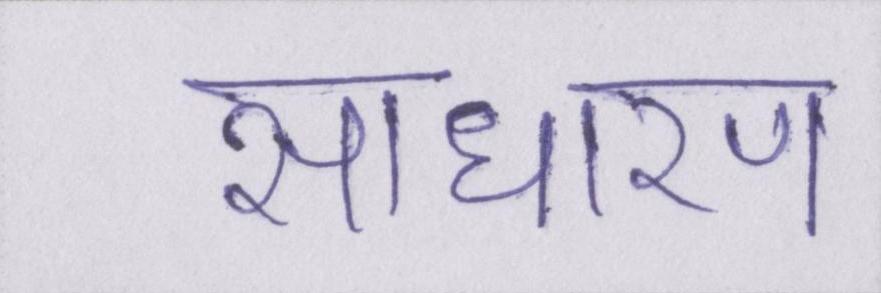 साधारण